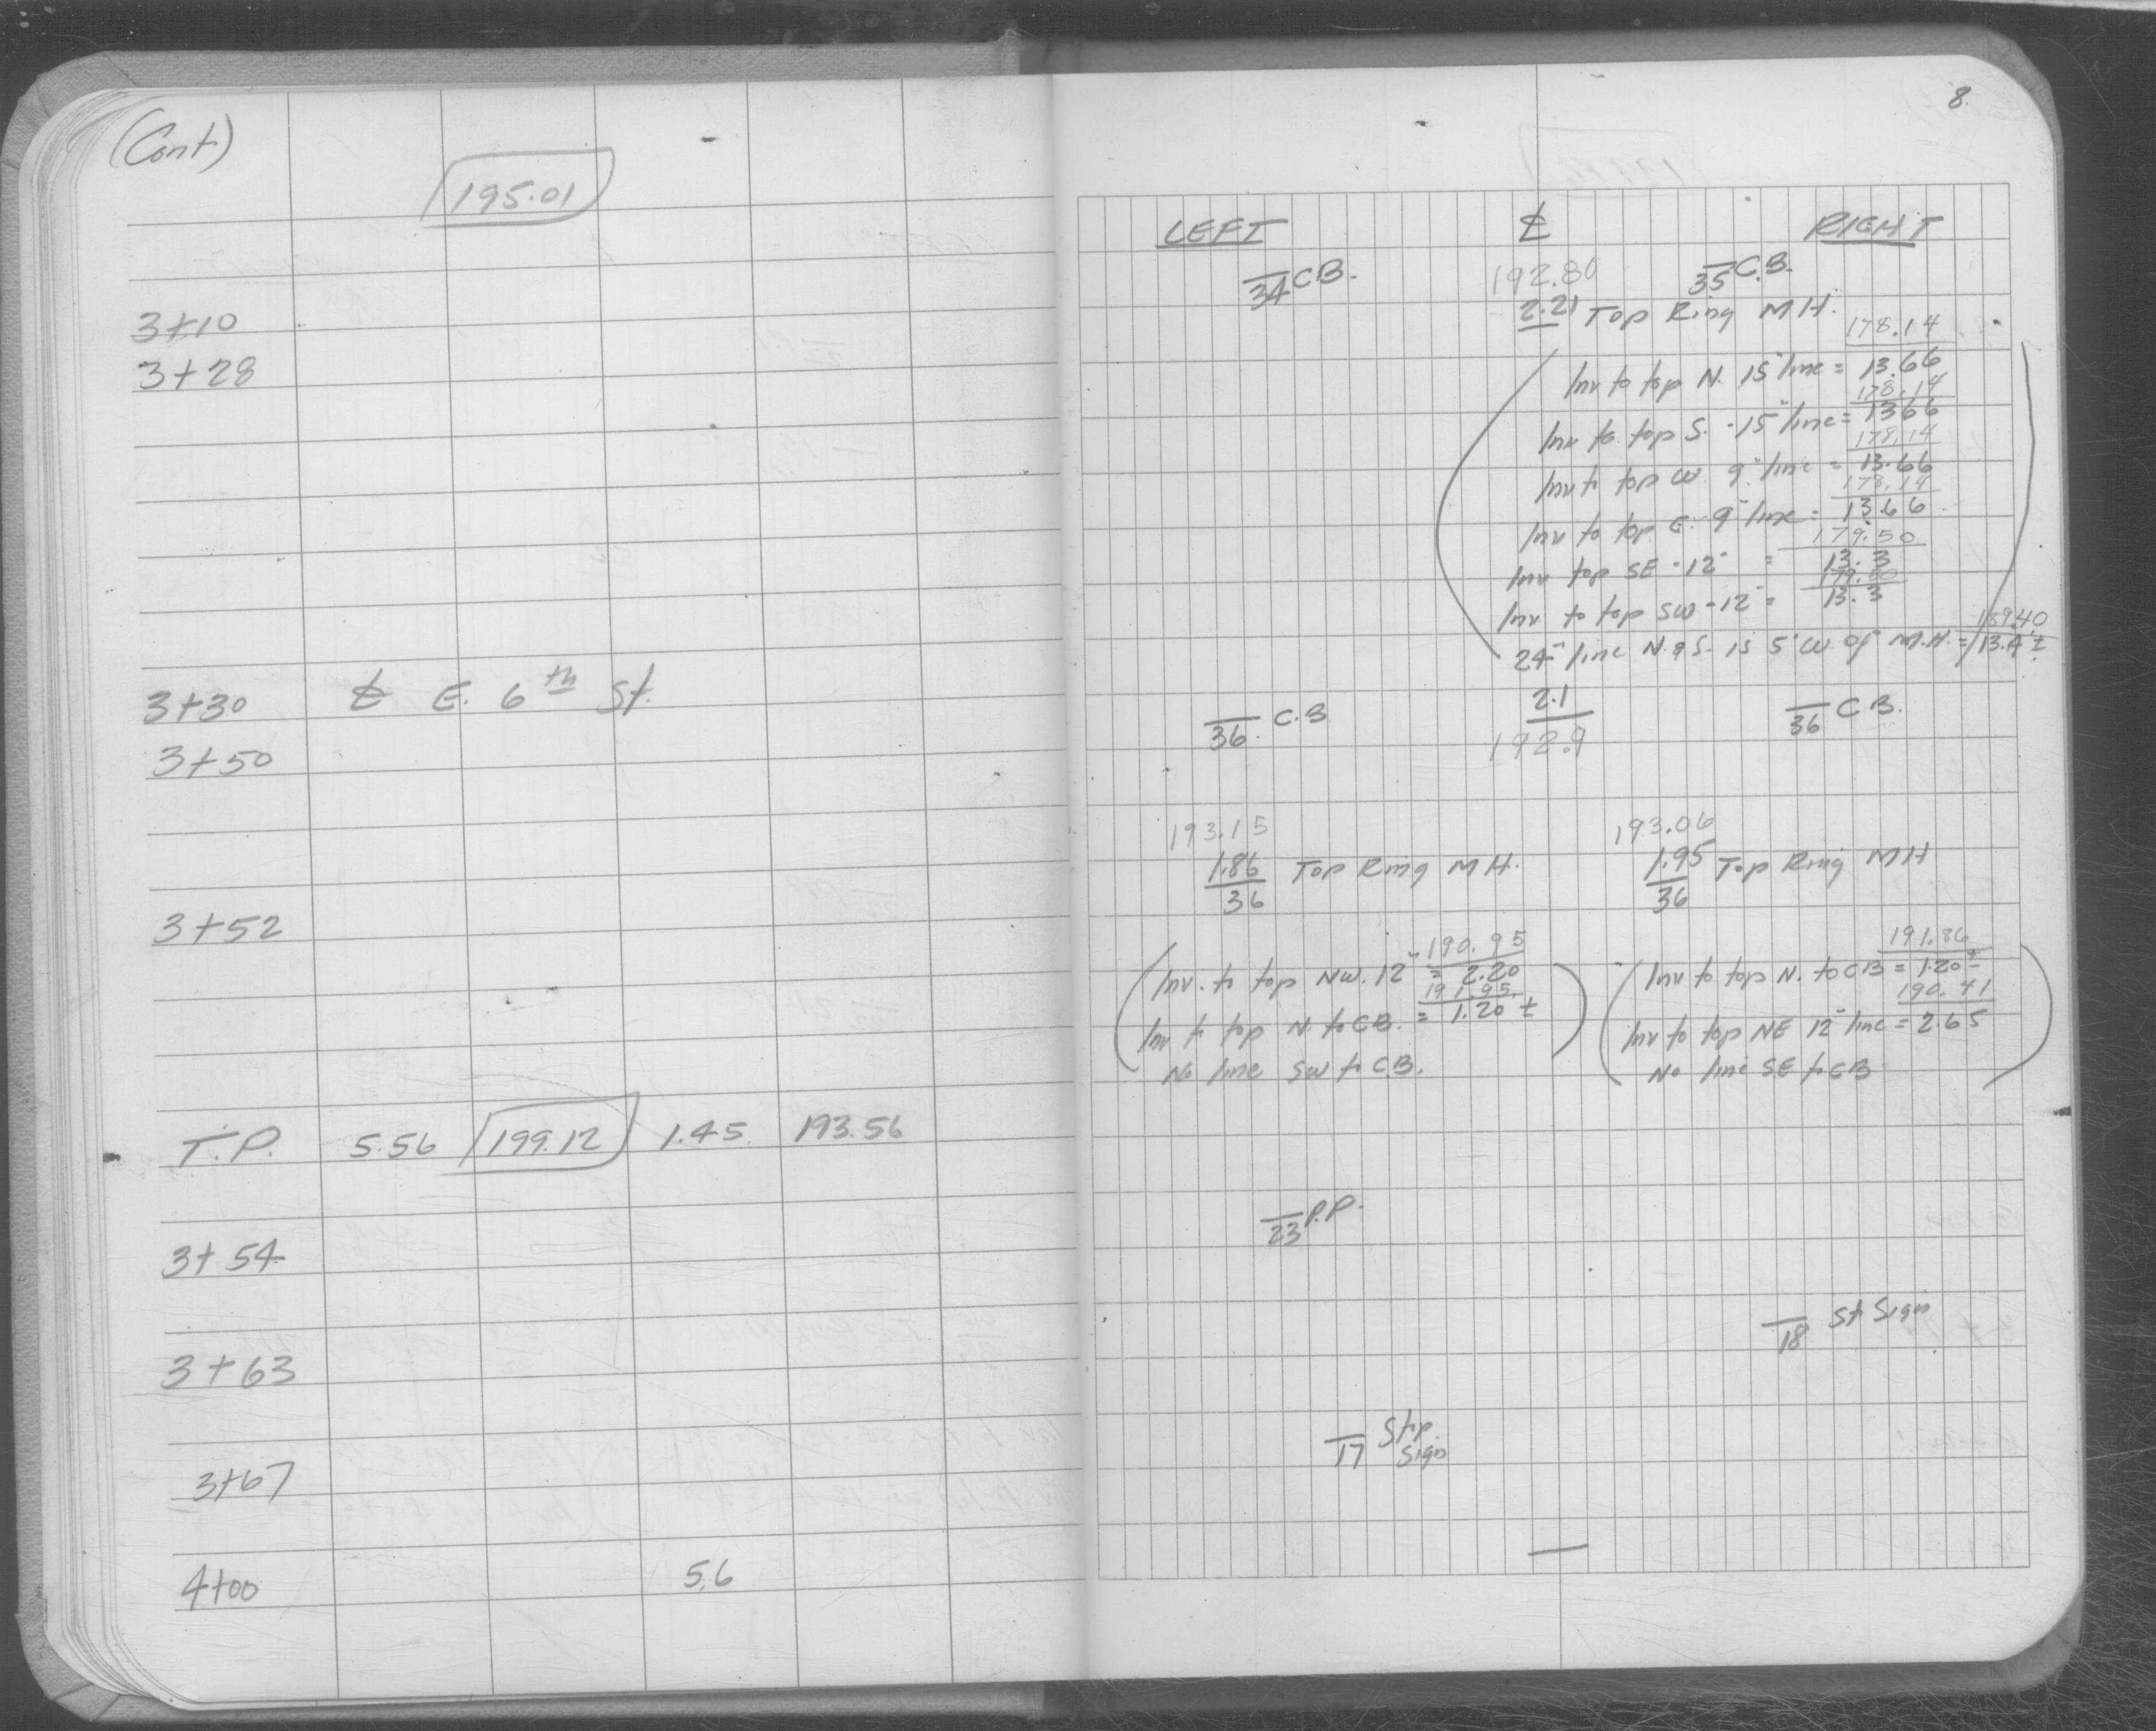 (Cont)
195.01
3+10
3+28
3+30 ℄ E. 6th St.
3+50
3+52
T.P. 5.56 199.12 1.45 193.56
3+54
3+63
3+67
4+00 5.6
8.
LEFT ℄ RIGHT
34 C.B. 192.80 35 C.B.
2.21 Top Ring M.H.
178.14
Inv to top N. 15" line = 13.66
178.14
Inv to top S. - 15" line = 13.66
178.14
Inv to top W. 9" line = 13.66
178.14
Inv to top E. 9" line = 13.66
179.50
Inv top SE - 12" = 13.3
179.50
Inv to top SW - 12" = 13.3
189.40
24" line N. & S. is 5' W of M.H. = 13.4' ±
36 C.B 2.1 36 C B.
192.9
193.15 193.06
1.86 Top Ring M H. 1.95 Top Ring MH
36 36
190.95
Inv. to top NW. 12" = 2.20
191.95
Inv to top N. to CB. = 1.20 ±
No line SW to C.B.
191.86
Inv to top N. to CB = 1.20 ±
190.41
Inv to top NE 12" line = 2.65
No line SE to CB
23 P.P.
18 St Sign
17 Stop
Sign